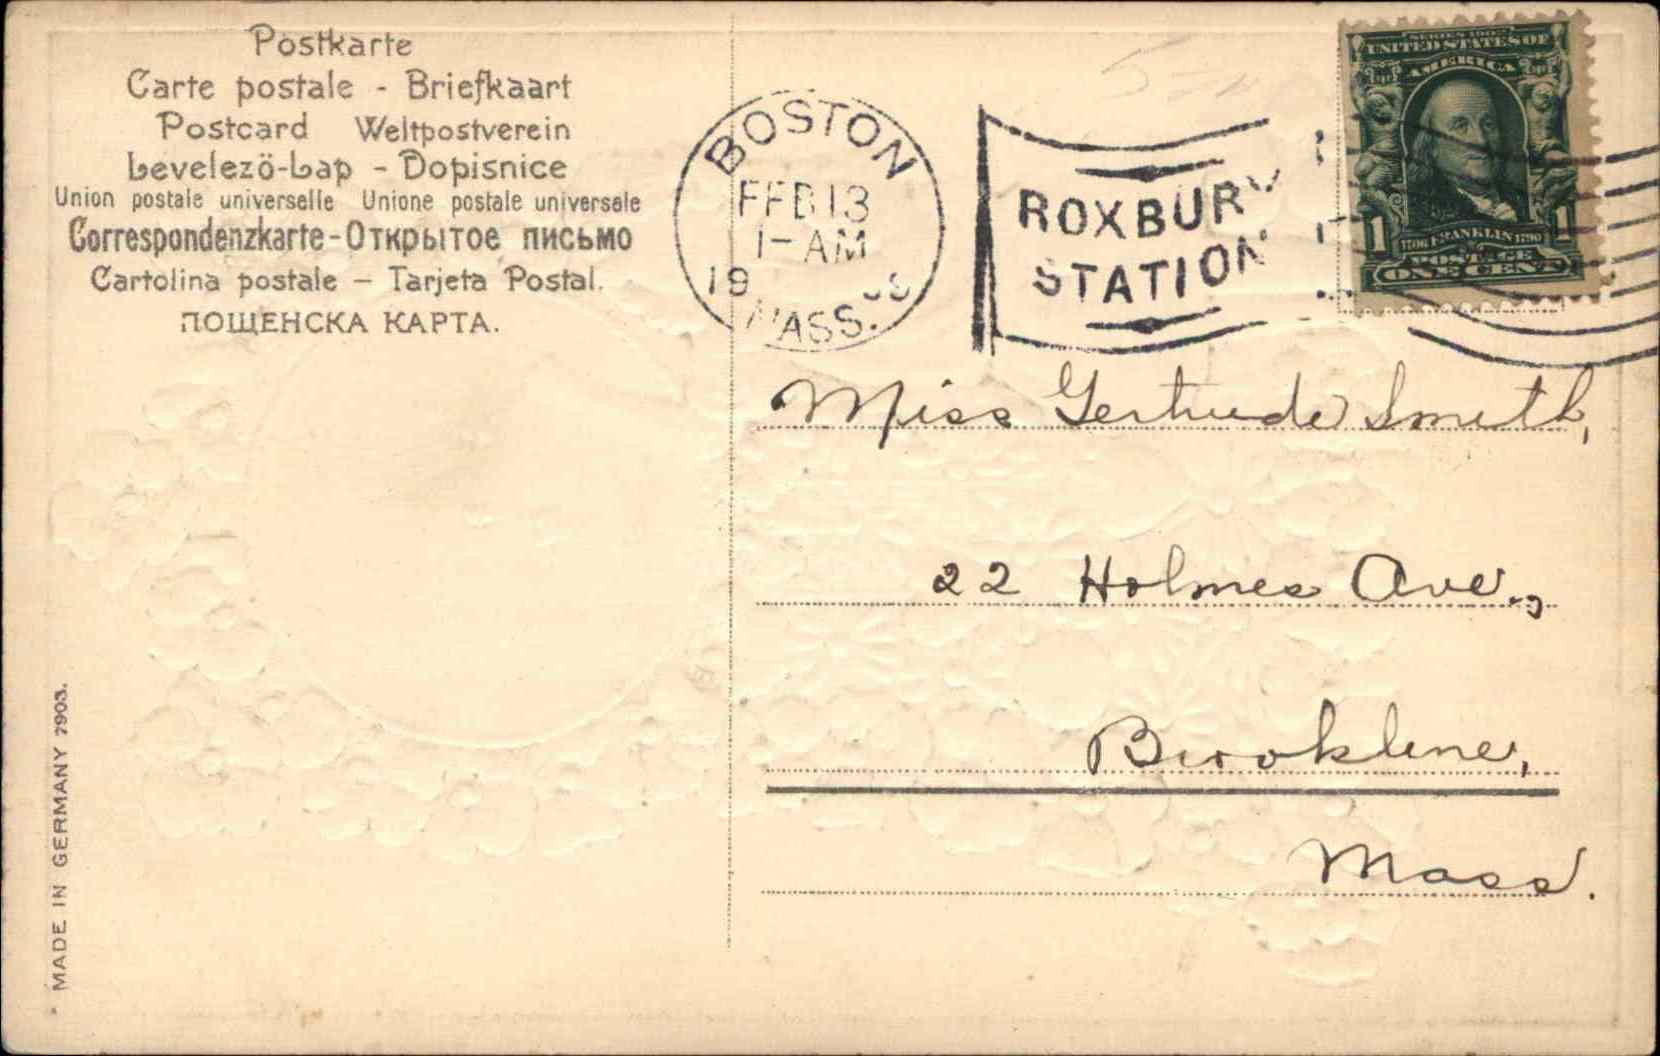 Postkarte
Carte postale - Briefkaart
Postcard Weltpostverein
Levelezö-Lap - Dopisnice
Union postale universelle Unione postale universale
Correspondenzkarte - Открытое письмо
Cartolina postale – Tarjeta Postal.
ПОЩЕНСКА КАРТА.
BOSTON
FEB 13
1-AM
19
MASS.
ROXBURY
STATION
SERIES 1902
UNITED STATES OF
AMERICA
1 1706 FRANKLIN 1790 1
POSTAGE
ONE CENT
Miss Gertrude Smith,
22 Holmes Ave.,
Brookline,
Mass.
MADE IN GERMANY 7903.